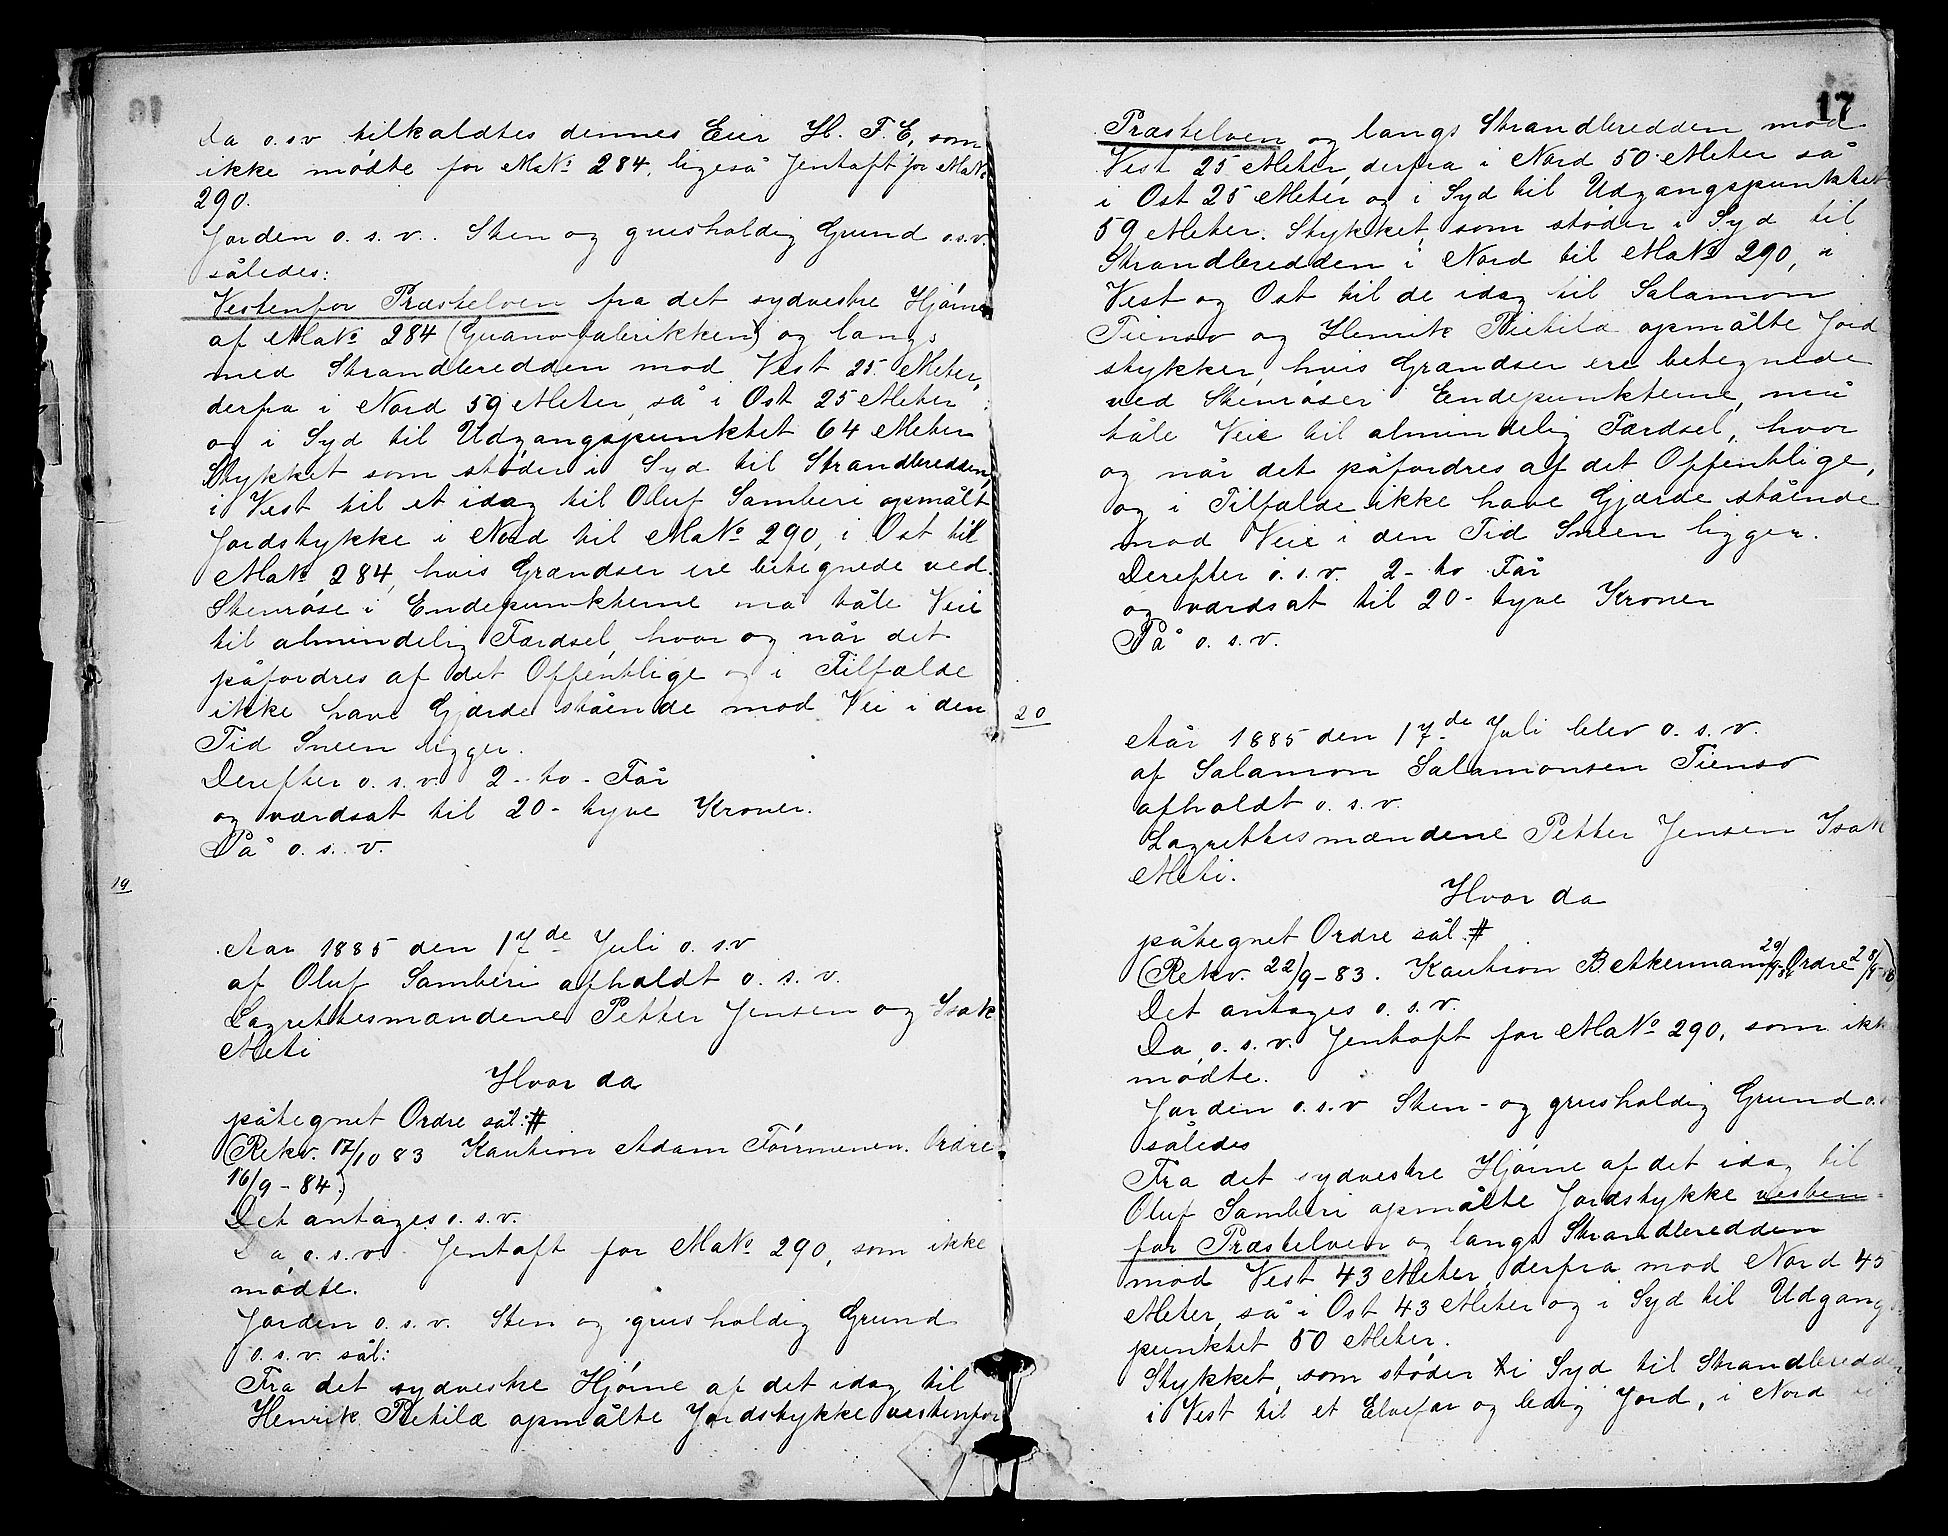 Da o.s.v. tilkaldtes dennes Eier H. F. E, som
ikke mødte for MaNº 284, ligeså Jentoft for MaNº
290.
Jorden o. s. v. Sten og grusholdig Grund o.s.v.
således:
Vestenfor Præstelven fra det sydvestre Hjørne
af MaNº 284 (Guanofabrikken) og langs
med Strandbredden mod Vest 25 Meter,
derfra i Nord 59 Meter, så i Ost 25 Meter
og i Syd til Udgangspunktet 64 Meter
Stykket som støder i Syd til Strandbredden,
i Vest til et idag til Oluf Samberi opmålt
Jordstykke i Nord til MaNº 290, i Ost til
MaNº 284, hvis Grændser ere betegnede ved
Stenrøse i Endepunkterne må tåle Veie
til almindelig Færdsel, hvor og når det
påfordres af det Offentlige og i Tilfælde
ikke have Gjærde stående mod Vei i den
Tid Sneen ligger.
Derefter o. s. v. 2 - to - Får
og værdsat til 20 - tyve Kroner.
På o. s. v.
19
Aar 1885 den 17de Juli o. s. v
af Oluf Samberi afholdt o. s. v.
Lagrettesmændene Petter Jensen og Isak
Meti
Hvor da
påtegnet Ordre sål: #
(Rekv. 17/10 83 Kaution Adam Törmenen. Ordre
16/9 - 84)
Det antages o. s. v.
Da o. s. v. Jentoft for MaNº 290, som ikke
mødte.
Jorden o. s. v. Sten og grusholdig Grund
o. s. v. sål:
Fra det sydvestre Hjørne af det idag til
Henrik Pietilæ opmålte Jordstykke vestenfor
17
Præstelven og langs Strandbredden mod
Vest 25 Meter, derfra i Nord 50 Meter så
i Ost 25 Meter og i Syd til Udgangspunktet
59 Meter. Stykket, som støder i Syd til
Strandbredden i Nord til MaNº 290, i
Vest og Ost til de idag til Salamon
Tienso og Henrik Pietilæ opmålte Jord
stykker, hvis Grændser ere betegnede
ved Stenrøser i Endepunkterne, må
tåle Veie til almindelig Færdsel, hvor
og når det påfordres af det Offentlige,
og i Tilfælde ikke have Gjærde stående
mod Veie i den Tid Sneen ligger.
Derefter o. s. v. 2 - to Får
og værdsat til 20 - tyve Kroner
På o. s. v.
20
Aår 1885 den 17de Juli blev o. s. v.
af Salamon Salamonsen Tienso
afholdt o. s. v.
Lagrettesmændene Petter Jensen Isak
Meti.
Hvor da
påtegnet Ordre sål: #
(Rekv. 22/9 - 83. Kaution Beckermann Ordre
Det antages o. s. v.
Da o. s. v. Jentoft for MaNº 290, som ikke
mødte.
Jorden o. s. v Sten - og grusholdig Grund o.
således
Fra det sydvestre Hjørne af det idag til
Oluf Samberi opmålte Jordstykke vesten-
for Præstelven og langs Strandbredden
mod Vest 43 Meter, derfra mod Nord 45
Meter, så i Ost 43 Meter og i Syd til Udgangs
punktet 50 Meter.
Stykket, som støder i Syd til Strandbredden
i Vest til et Elvefar og ledig Jord, i Nord